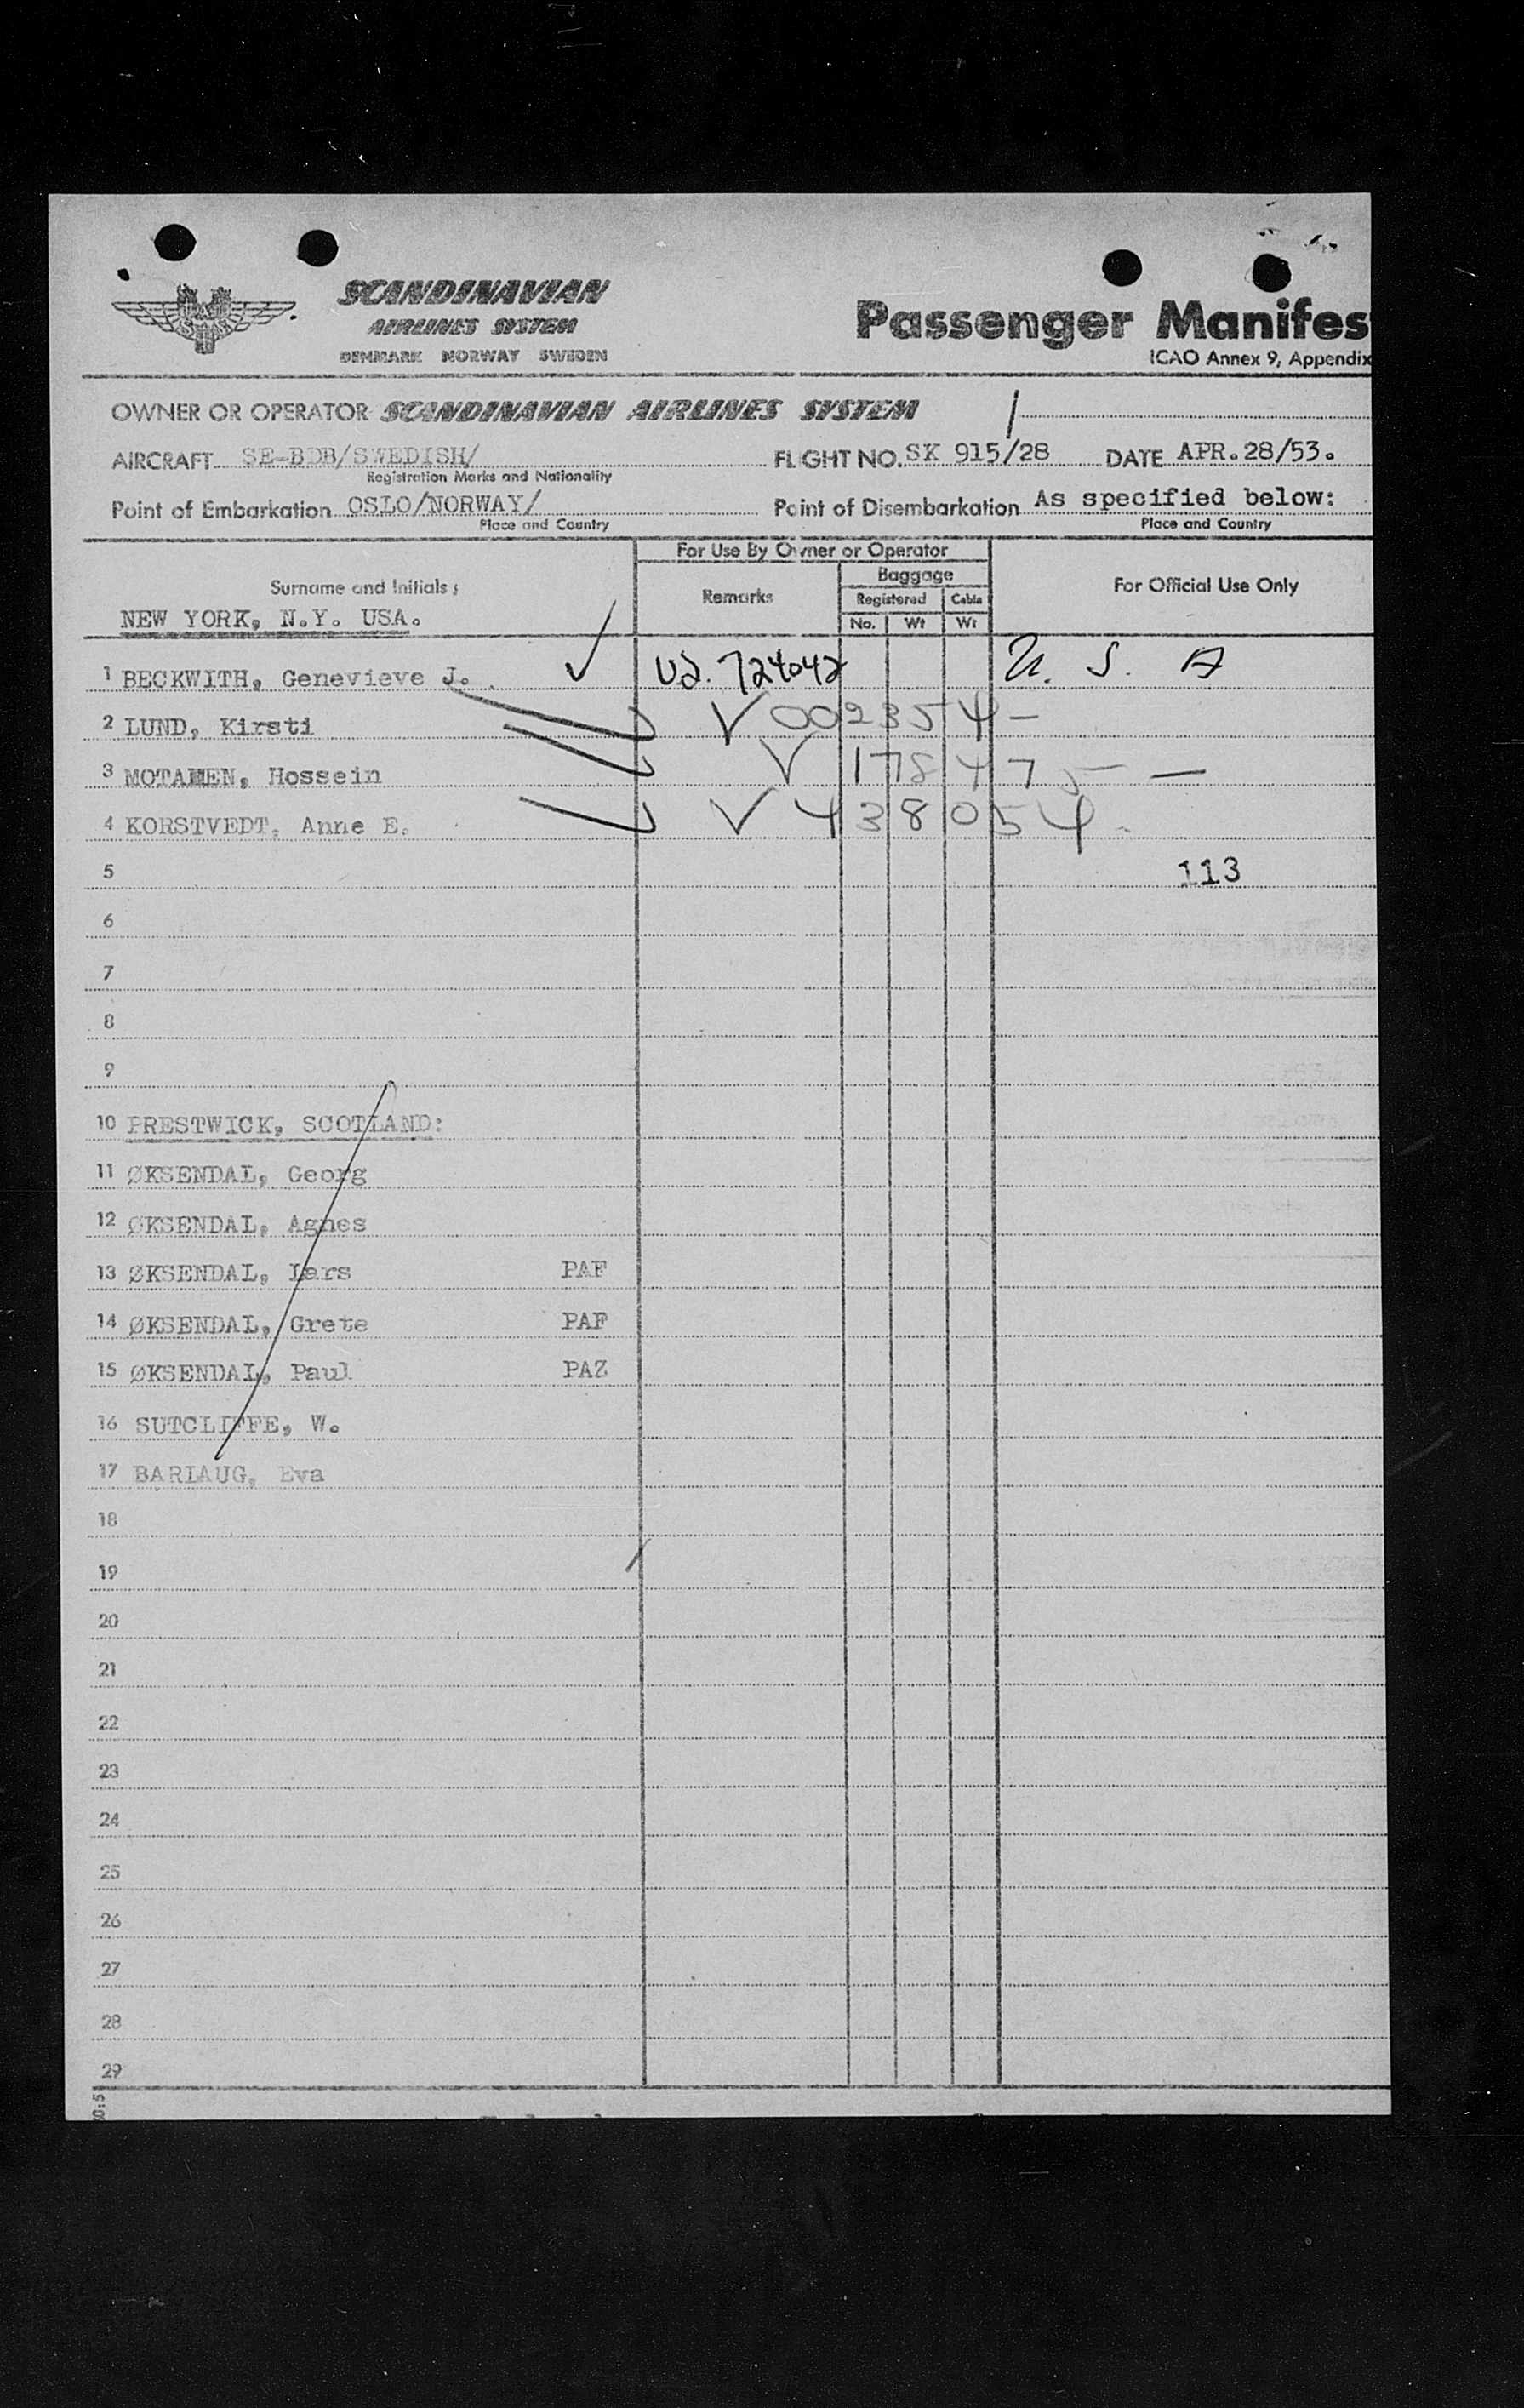 SCANDINAVIAN
AIRLINES SYSTEM
DENMARK NORWAY SWEDEN
Passenger Manifes
ICAO Annex 9, Appendix
OWNER OR OPERATOR SCANDINAVIAN AIRLINES SYSTEM
AIRCRAFT SE-BDB/SWEDISH/ FLIGHT NO. SK 915/28 DATE APR.28/53.
Registration Marks and Nationality
Point of Embarkation OSLO/NORWAY/ Point of Disembarkation As specified below:
Place and Country Place and Country
For Use By Owner or Operator
Surname and Initials Remarks Baggage For Official Use Only
Registered Cabin
NEW YORK, N.Y. USA. No. Wt Wt
1 BECKWITH, Genevieve J. ✓ 724042 U. S. A
2 LUND, Kirsti ✓ 002354 —
3 MOTAMEN, Hossein ✓ 178475 —
4 KORSTVEDT, Anne E. ✓ 438054
5 113
6
7
8
9
10 PRESTWICK, SCOTLAND:
11 ØKSENDAL, Georg
12 ØKSENDAL, Agnes
13 ØKSENDAL, Lars PAF
14 ØKSENDAL, Grete PAF
15 ØKSENDAL, Paul PAZ
16 SUTCLIFFE, W.
17 BARLAUG, Eva
18
19
20
21
22
23
24
25
26
27
28
29